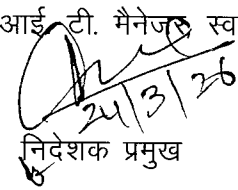 आई. टी. मैनेजर स्व
24/3/26
निदेशक प्रमुख